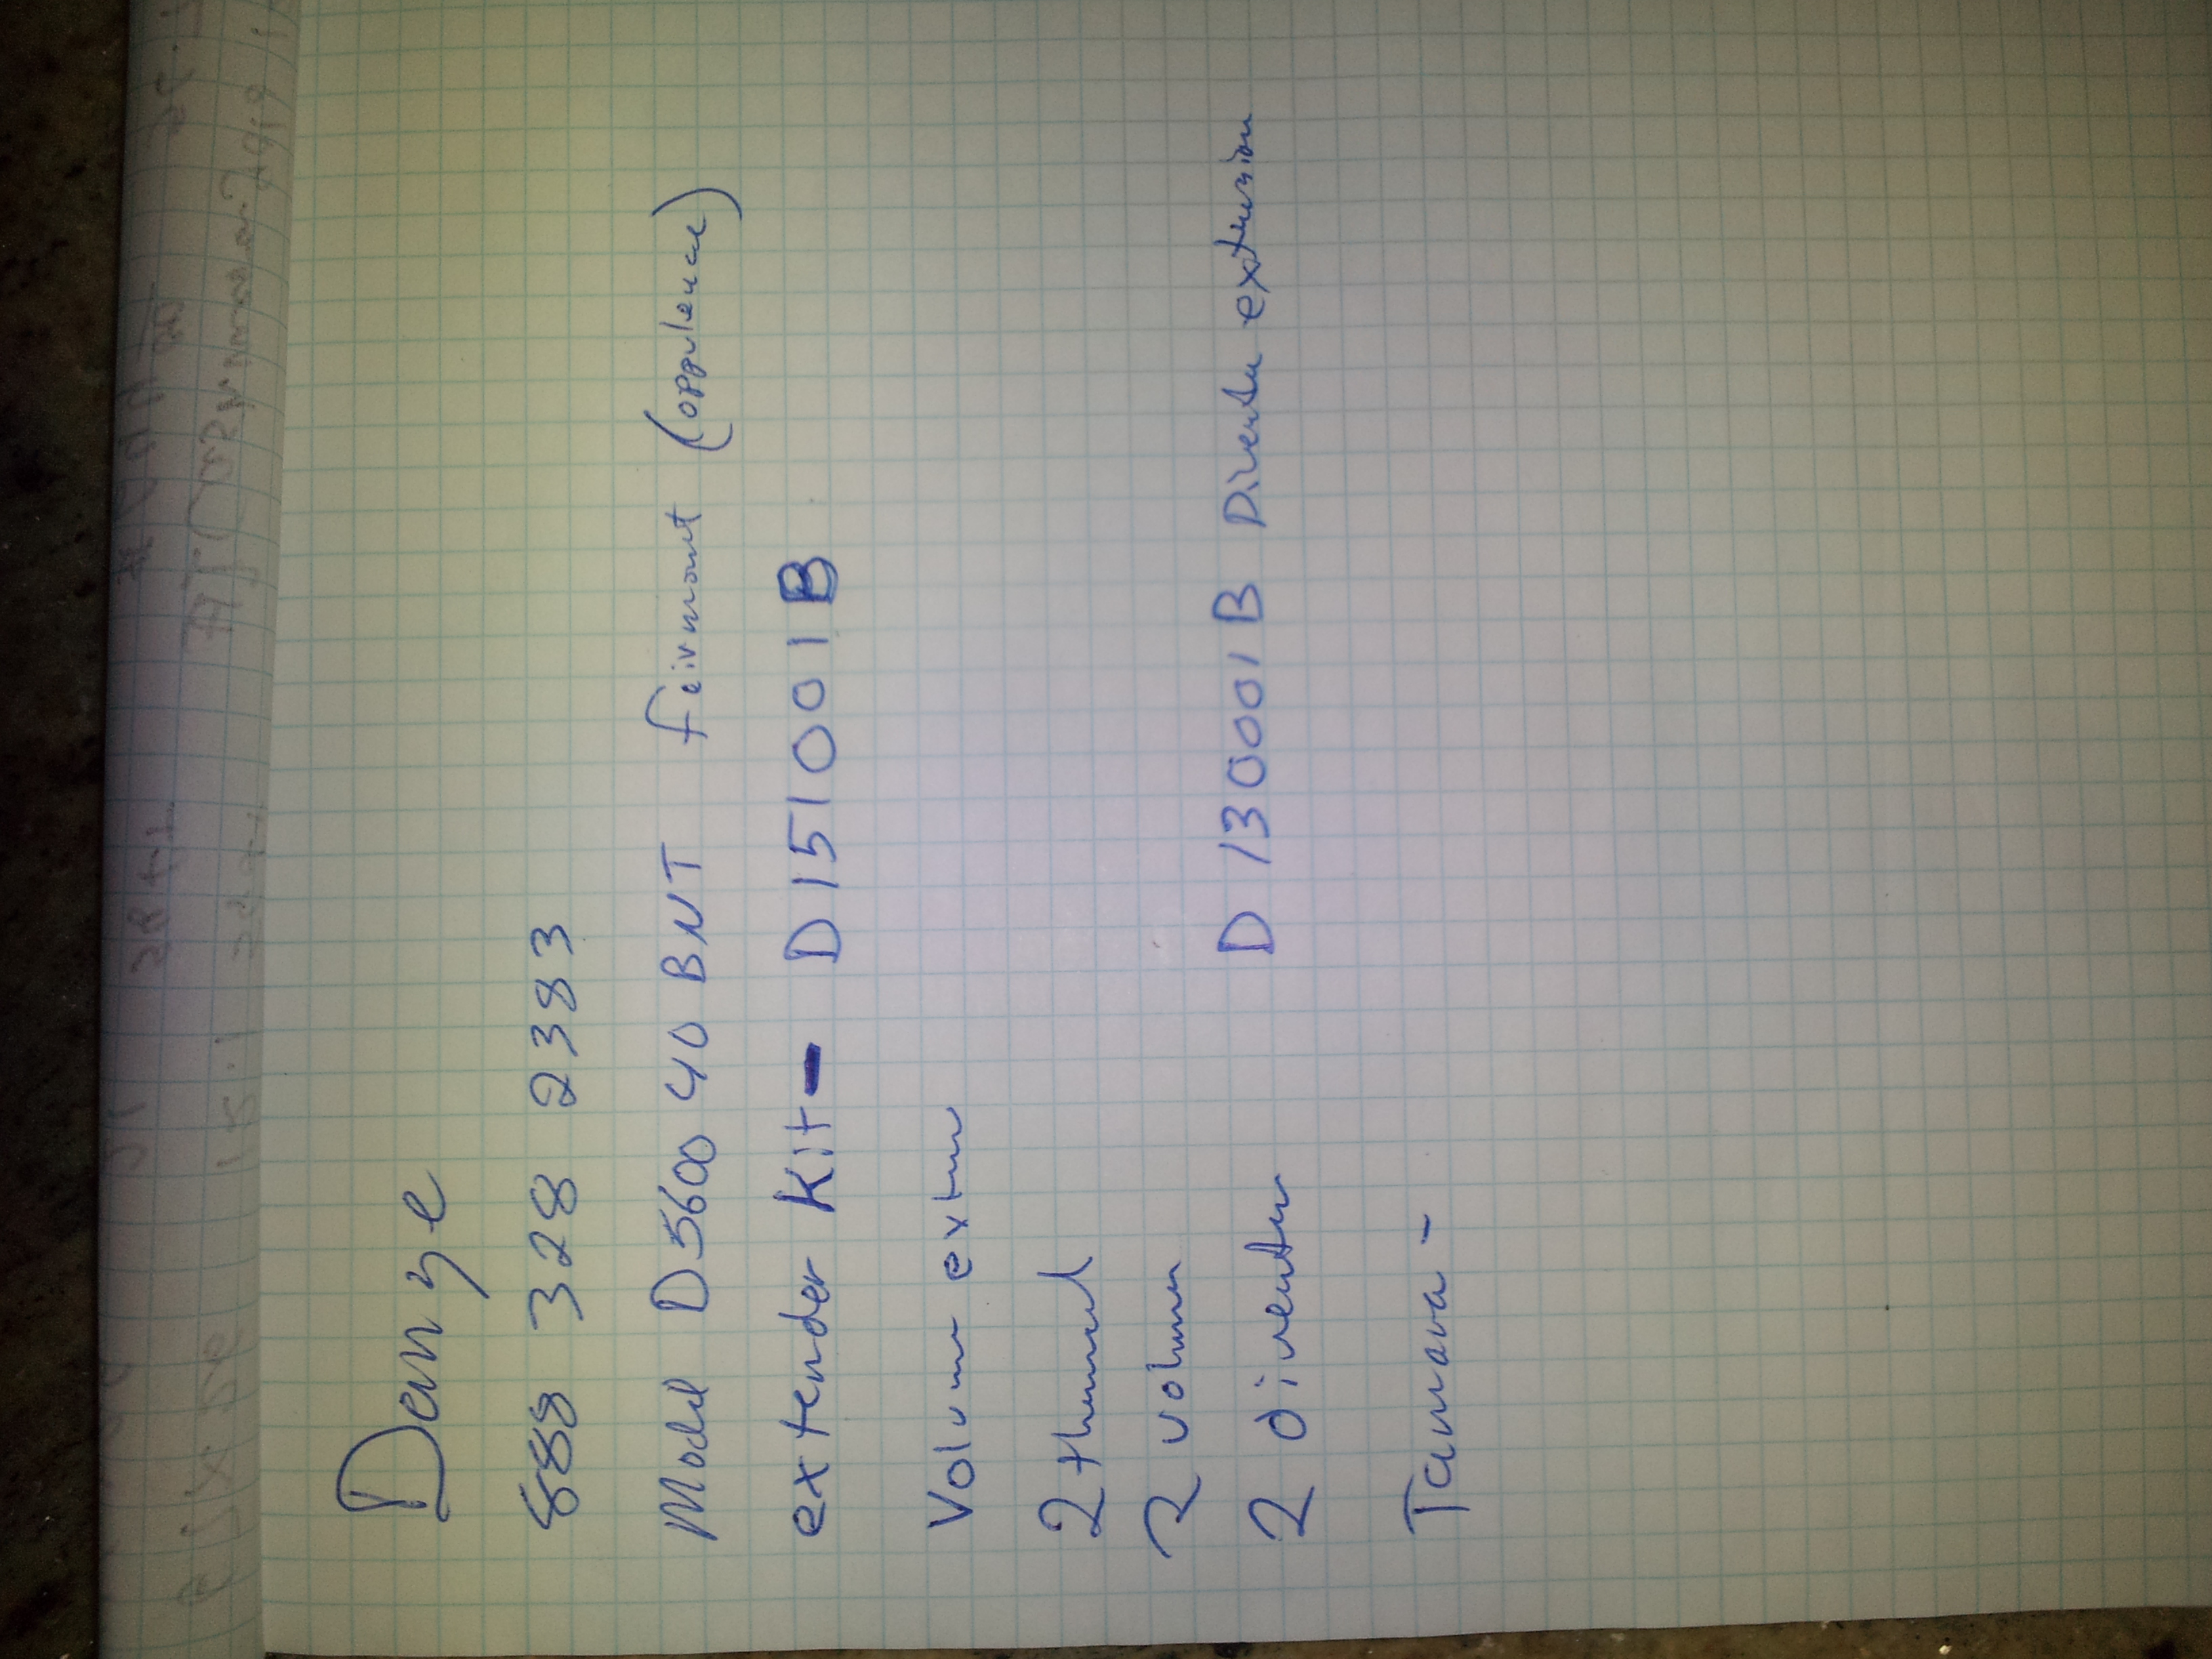 Denye
888 328 2383
Model D5600 40 BNT feirmont (oppulence)
extender Kit - D151001B
Volum extur
2 thermel
2 volum
2 Divertur D130001B Diverta extension
Tamara -